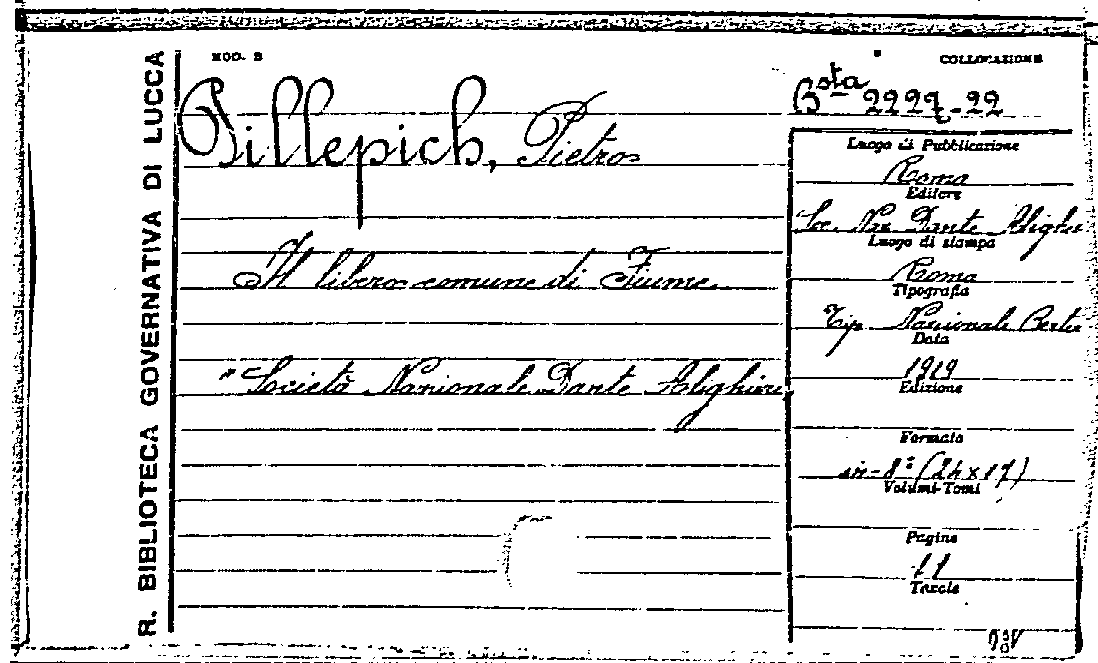 R. BIBLIOTECA GOVERNATIVA DI LUCCA
MOD. B
COLLOCAZIONE
Bsta 2227-22
Pillepich, Pietro
Luogo di Pubblicazione
Roma
Editore
Soc. Naz. Dante Alighie
Luogo di stampa
Roma
Tipografia
Tip. Nazionale Berte
Data
1919
Edizione
Formato
in-8° (24x17)
Volumi-Tomi
Pagine
11
Tavole
Il libero comune di Fiume
"Società Nazionale Dante Alighieri